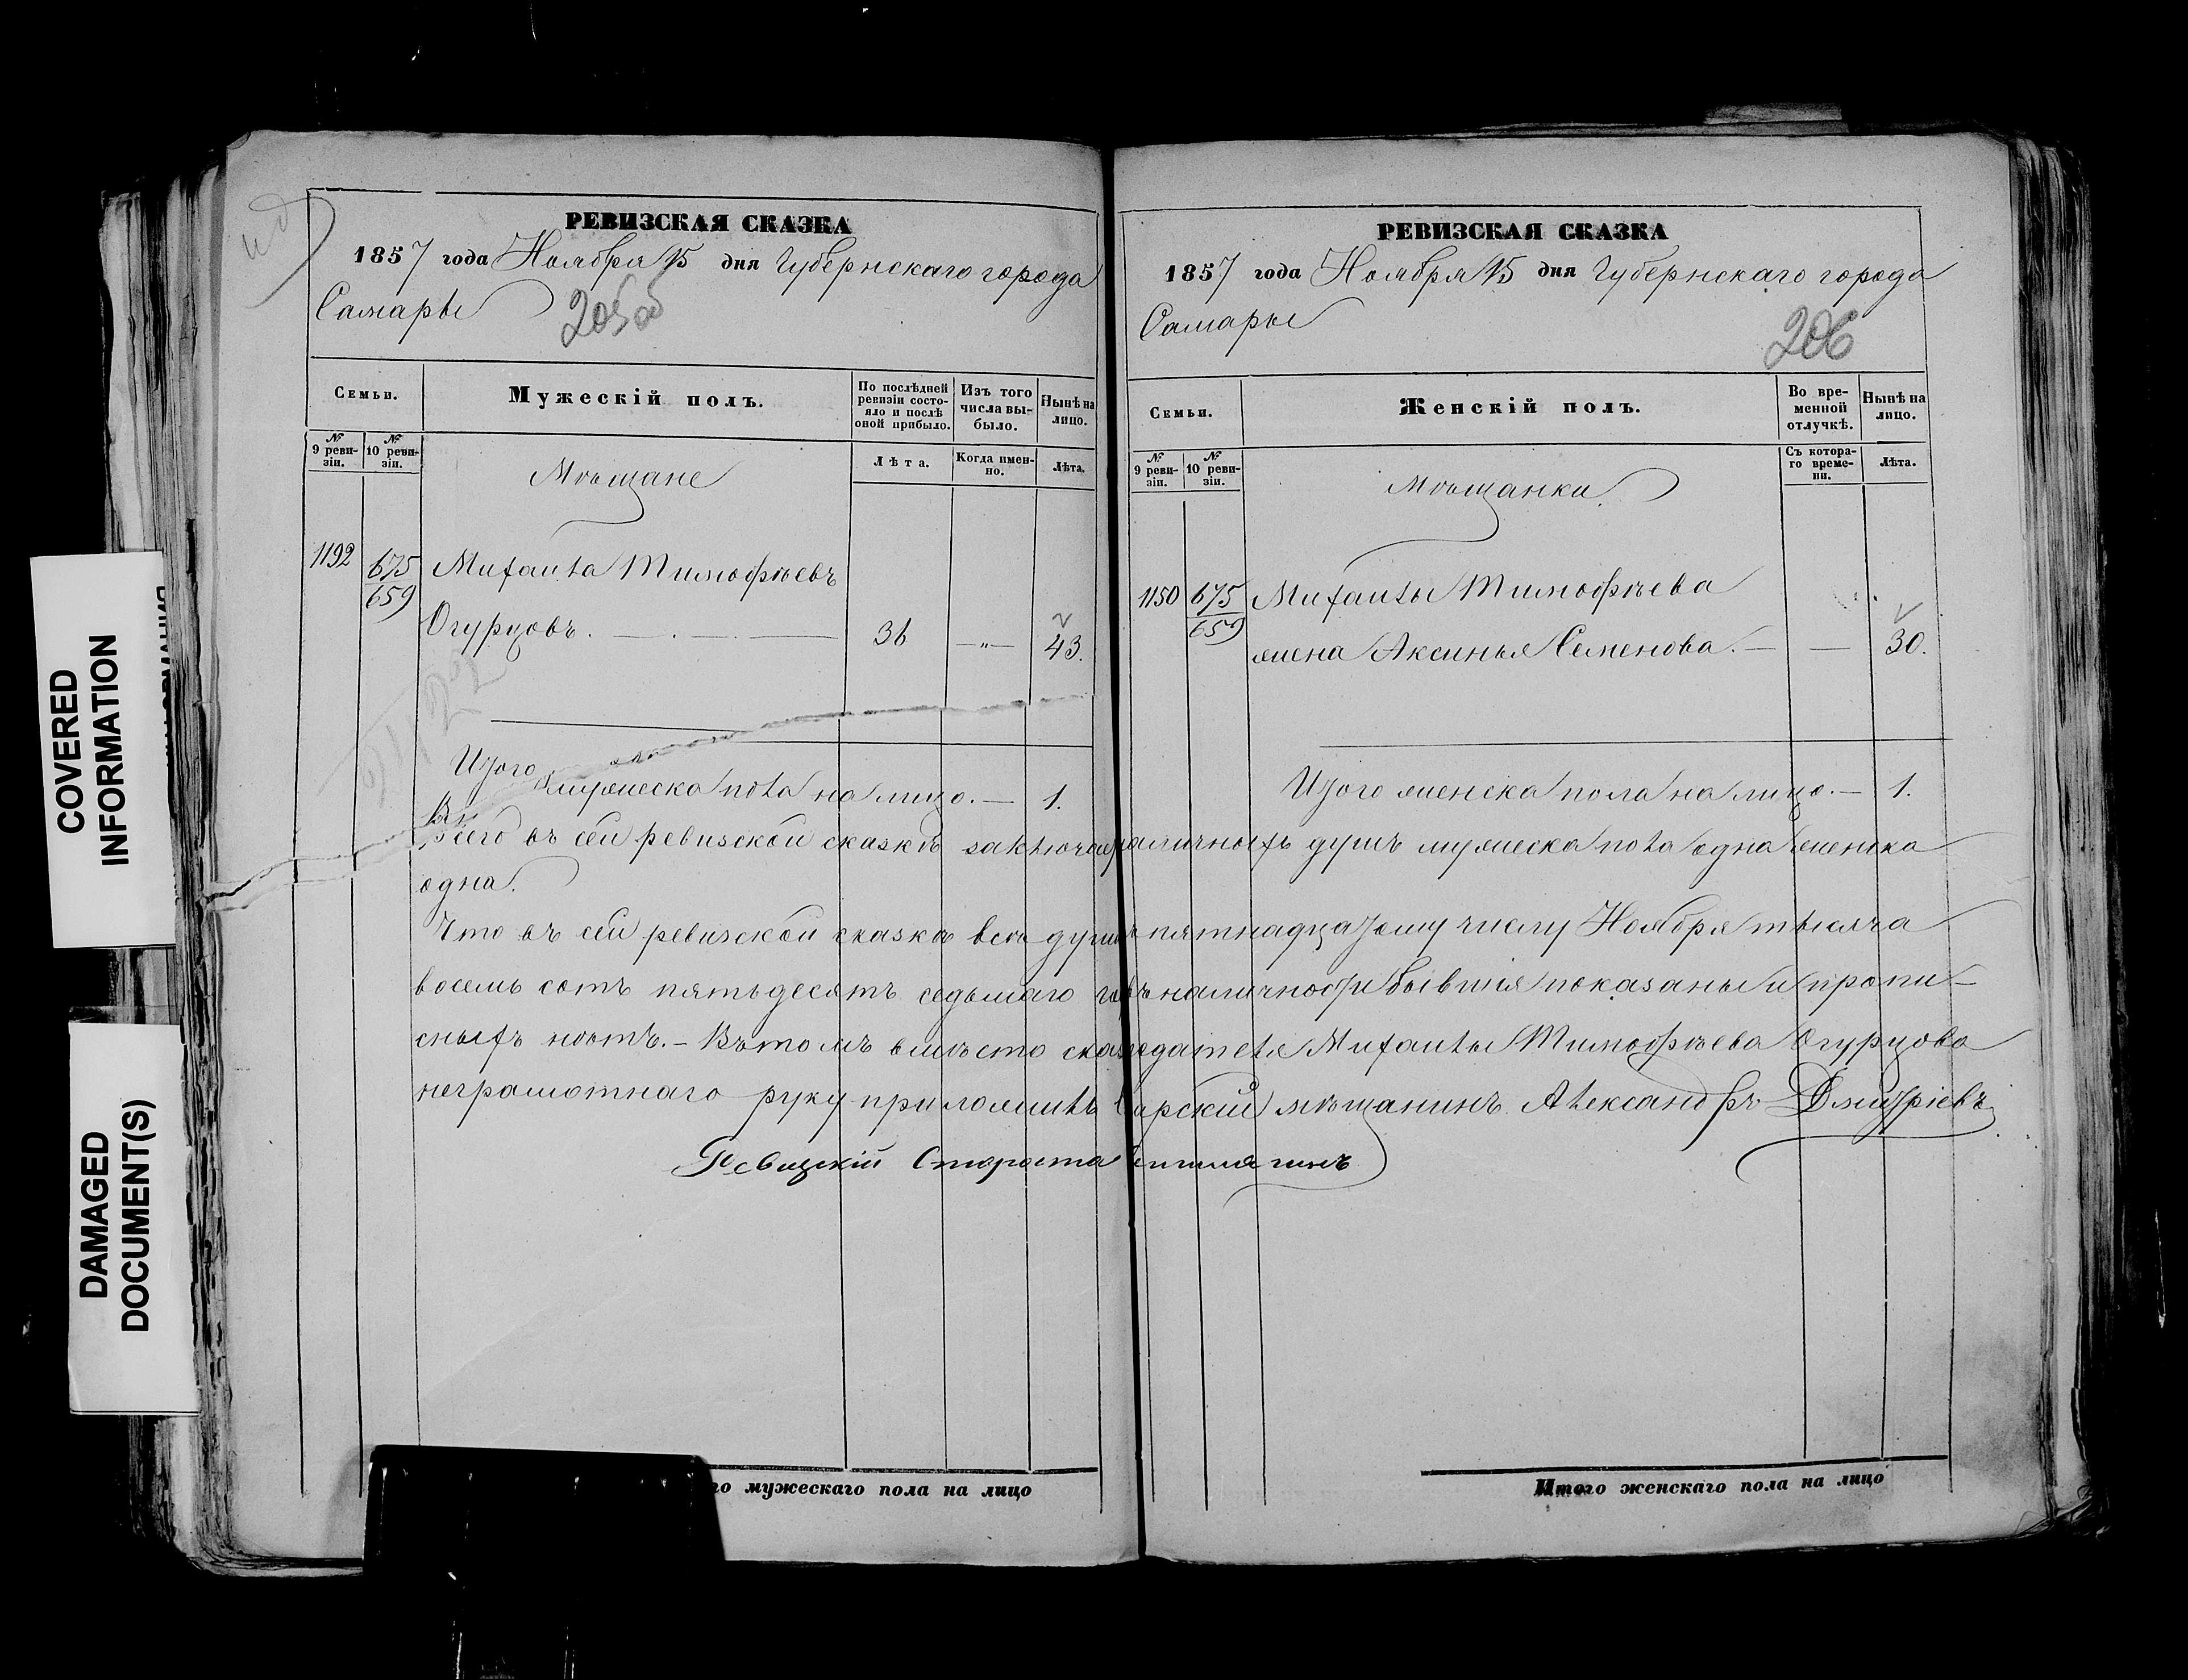 COVERED
INFORMATION
DAMAGED
DOCUMENT(S)
РЕВИЗСКАЯ СКАЗКА
1857 года Ноября 15 дня Губернскаго города
Самары
205об
Семьи.
Мужескій полъ.
По послѣдней ревизіи состояло и послѣ оной прибыло.
Изъ того числа выбыло.
Нынѣ на лицо.
№ 9 ревизіи.
№ 10 ревизіи.
Мѣщане
Лѣта.
Когда именно.
Лѣта.
1192 675
659
Михайла Тимофѣевъ
Огурцовъ. 36 —„— 43.
Итого мужеска пола на лицо. — 1.
РЕВИЗСКАЯ СКАЗКА
1857 года Ноября 15 дня Губернскаго города
Самары
206
Семьи.
Женскій полъ.
Во временной отлучкѣ.
Нынѣ на лицо.
№ 9 ревизіи.
№ 10 ревизіи.
Мѣщанки
Съ котораго времени.
Лѣта.
1150 675
659
Михайлы Тимофѣева
жена Аксинья Семенова. — — 30.
Итого женска пола на лицо. — 1.
Всего въ сей ревизской сказкѣ наличныхъ душъ мужеска пола одна женска
одна.
Что въ сей ревизской сказкѣ всѣ души пятнадцатому числу Ноября тысяча
восемь сотъ пятьдесятъ седьмаго наличности бывшія показаны и пропи-
сныхъ нѣтъ. — Въ томъ вмѣсто сказкодателя Михайлы Тимофѣева Огурцова
неграмотнаго руку приложилъ мѣщанинъ Александръ Дмитріевъ
Староста
го мужескаго пола на лицо
Итого женскаго пола на лицо